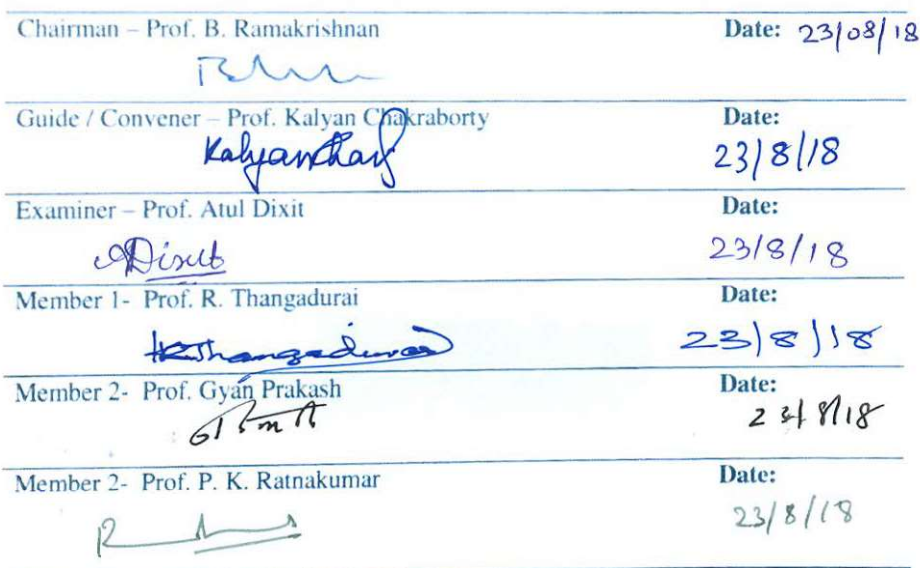 Chairman – Prof. B. Ramakrishnan Date: 23/08/18
Guide / Convener – Prof. Kalyan Chakraborty Date:
Kalyan Chak 23/8/18
Examiner – Prof. Atul Dixit Date:
ADixit 23/8/18
Member 1- Prof. R. Thangadurai Date:
RThangadurai 23/8/18
Member 2- Prof. Gyan Prakash Date:
23/8/18
Member 2- Prof. P. K. Ratnakumar Date:
23/8/18